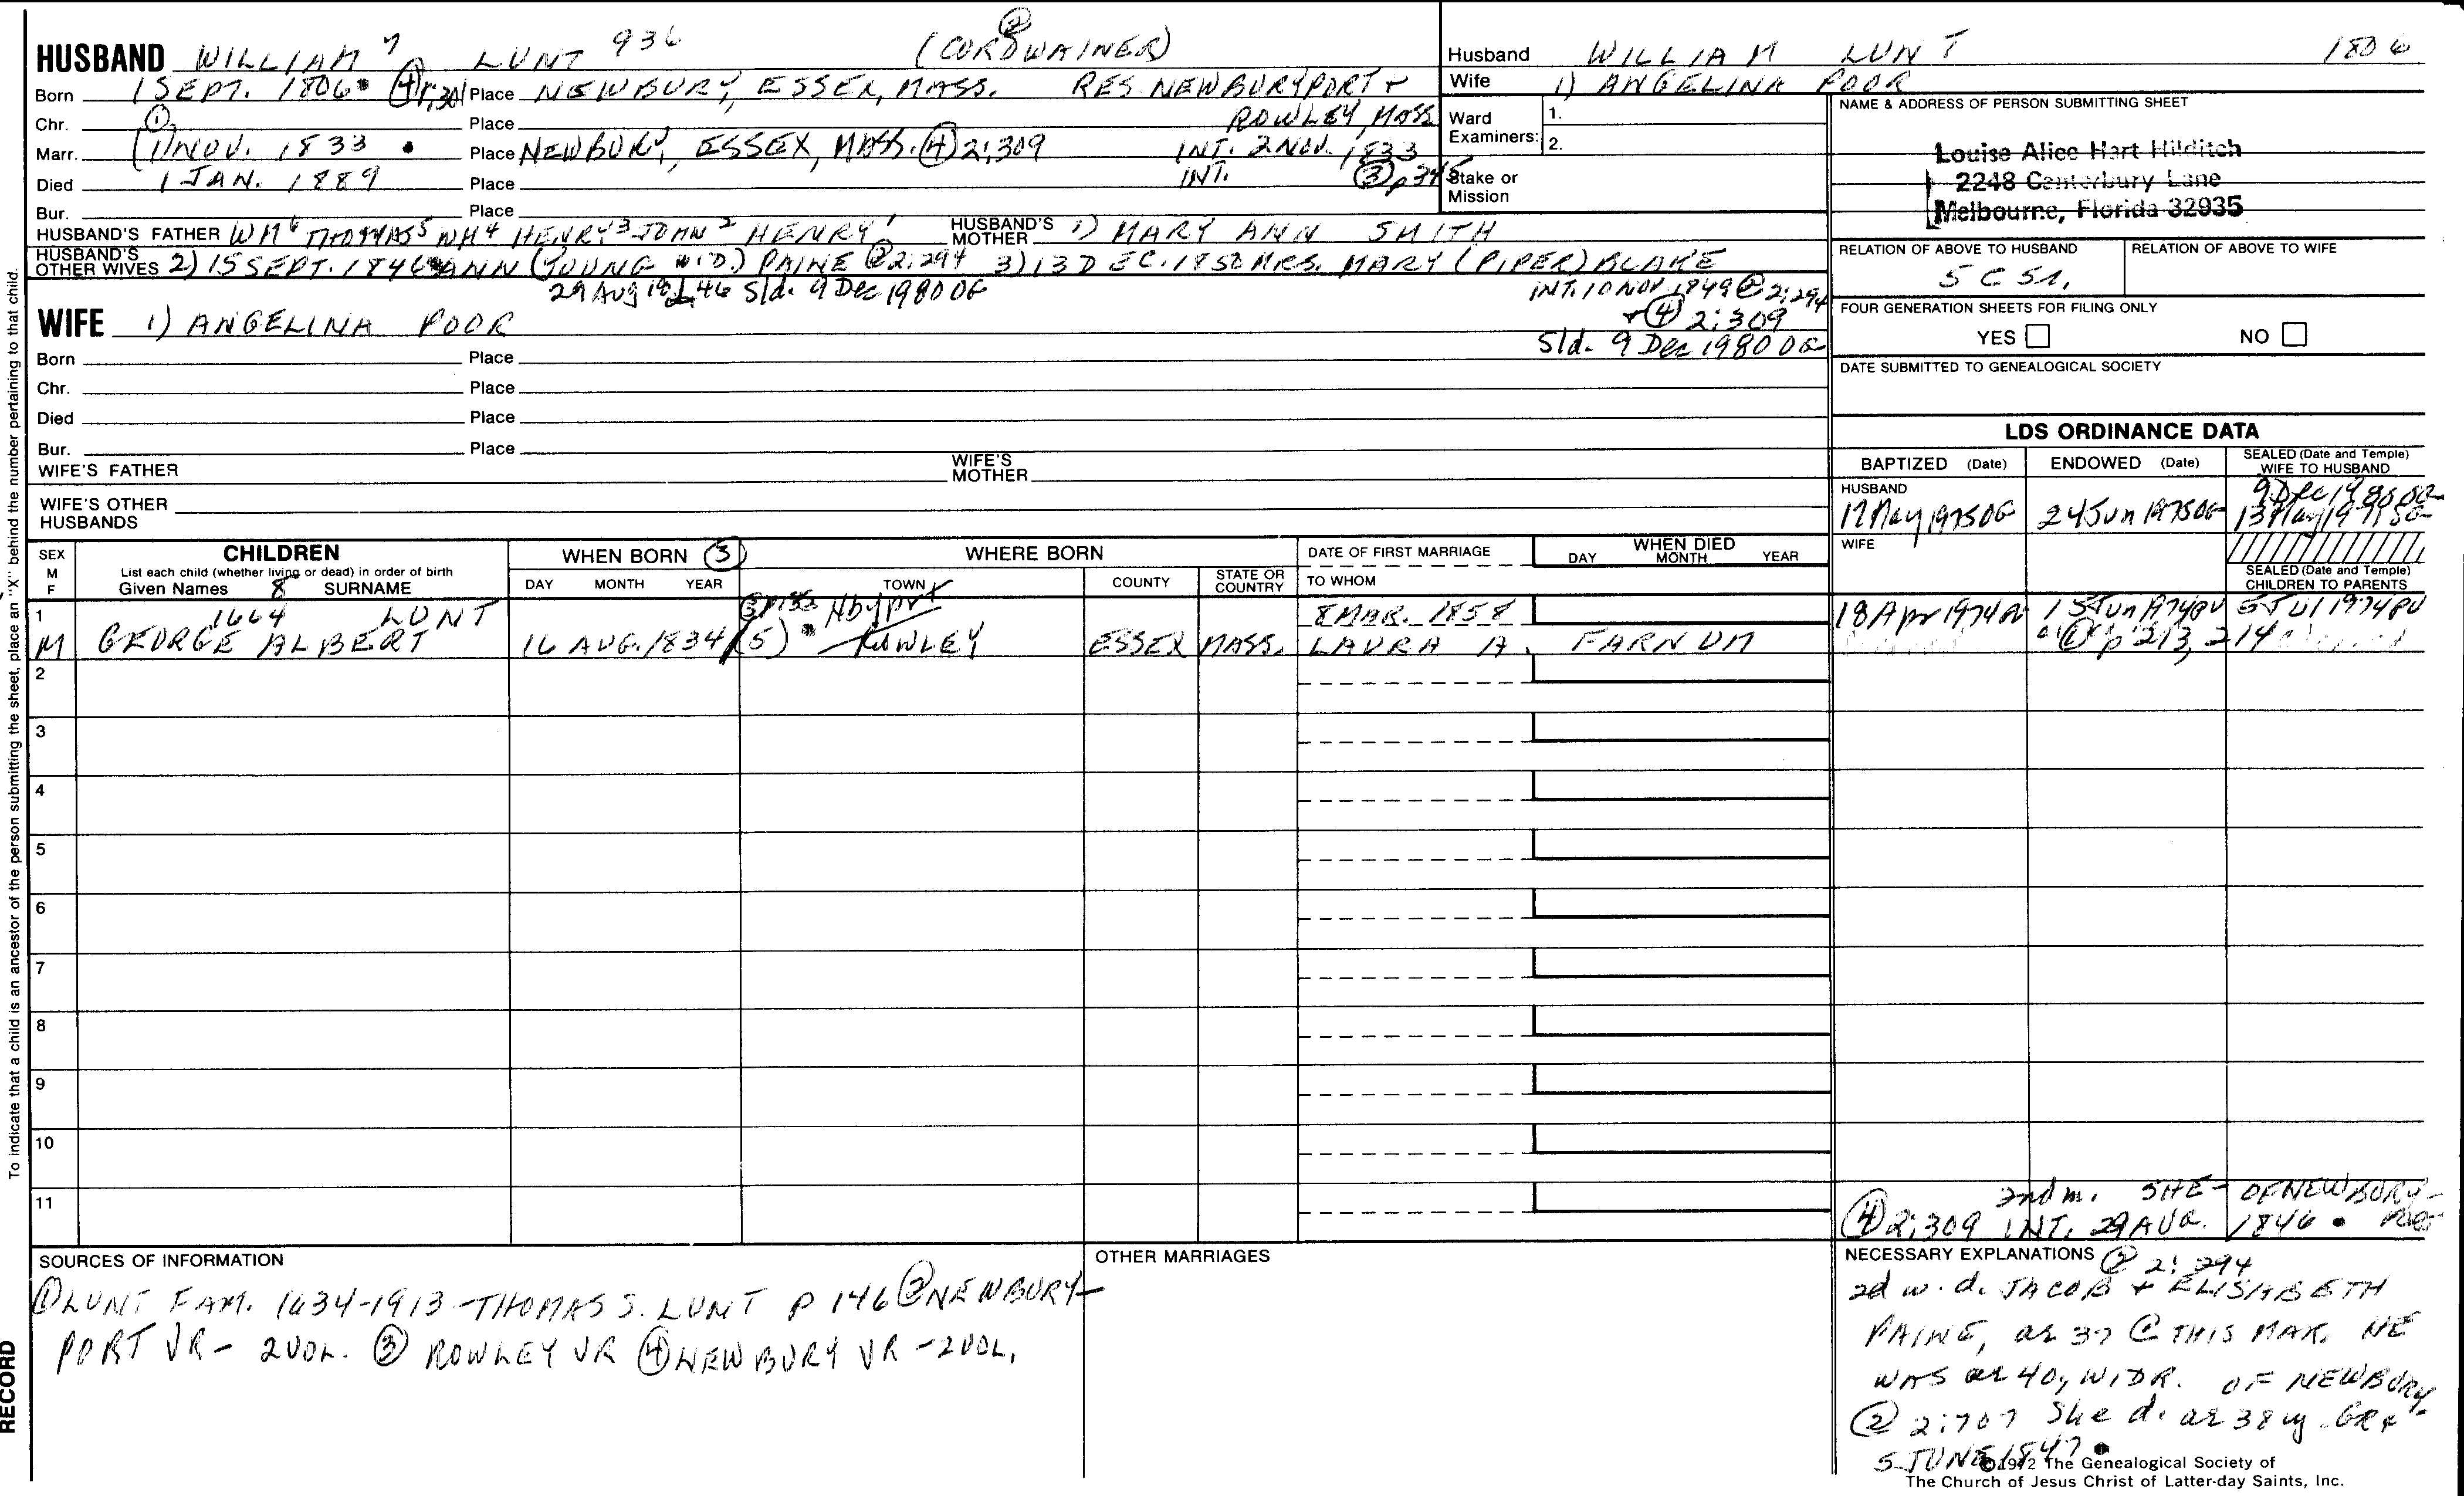 HUSBAND WILLIAM 7 LUNT 936 (CORDWAINER) ②
Born 1 SEPT. 1806 ④ 1;301 Place NEWBURY, ESSEX, MASS. RES NEWBURYPORT +
Chr. ① Place ROWLEY, MASS
Marr. (1) NOV. 1833 Place NEWBURY, ESSEX, MASS. ④ 2;309 INT. 2 NOV. 1833
Died 1 JAN. 1889 Place INT. ③ p 345
Bur. Place
HUSBAND'S FATHER WM6 THOMAS5 WM4 HENRY3 JOHN2 HENRY1 HUSBAND'S MOTHER 1) MARY ANN SMITH
HUSBAND'S OTHER WIVES 2) 15 SEPT. 1846 ANN (YOUNG WID.) PAINE ② 2;294 3) 13 DEC. 1850 MRS. MARY (PIPER) BLAKE
29 Aug 1846 Sld. 9 Dec 1980 OG INT. 10 NOV 1849 ② 2;294
+ ④ 2:309
Sld. 9 Dec 1980 OG
WIFE 1) ANGELINA POOR
Born Place
Chr. Place
Died Place
Bur. Place
WIFE'S FATHER WIFE'S MOTHER
WIFE'S OTHER HUSBANDS
Husband WILLIAM LUNT 1806
Wife 1) ANGELINA POOR
Ward Examiners: 1.
2.
Stake or Mission
NAME & ADDRESS OF PERSON SUBMITTING SHEET
Louise Alice Hart Hilditch
2248 Canterbury Lane
Melbourne, Florida 32935
RELATION OF ABOVE TO HUSBAND RELATION OF ABOVE TO WIFE
5 C 5r.
FOUR GENERATION SHEETS FOR FILING ONLY
YES NO
DATE SUBMITTED TO GENEALOGICAL SOCIETY
LDS ORDINANCE DATA
BAPTIZED (Date) ENDOWED (Date) SEALED (Date and Temple) WIFE TO HUSBAND
HUSBAND 9 Dec 1980 OG
17 May 1975 OG 24 Jun 1975 OG 13 May
WIFE
SEALED (Date and Temple) CHILDREN TO PARENTS
SEX M F CHILDREN WHEN BORN ③ WHERE BORN DATE OF FIRST MARRIAGE WHEN DIED DAY MONTH YEAR
List each child (whether living or dead) in order of birth
Given Names 8 SURNAME DAY MONTH YEAR TOWN COUNTY STATE OR COUNTRY TO WHOM
1 1664 LUNT Nbyprt 8 MAR. 1858 18 Apr 1974 1 Jun 1974 PV 5 JUl 1974 PV
M GEORGE ALBERT 16 AUG. 1834 (5) ROWLEY ESSEX MASS. LAURA A. FARNUM ① p 213, 214
2
3
4
5
6
7
8
9
10
11
2nd m. SHE - OF NEWBURY-
④ 2;309 INT. 29 AUG. 1846 PORT
SOURCES OF INFORMATION
① LUNT FAM. 1634-1913 - THOMAS S. LUNT P 146 ② NEWBURY-
PORT VR - 2 VOL. ③ ROWLEY VR ④ NEWBURY VR - 2 VOL.
OTHER MARRIAGES
NECESSARY EXPLANATIONS ② 2: 294
2d w. d. JACOB + ELISABETH
PAINE, ae 37 @ THIS MAR. HE
WAS ae 40, WIDR. OF NEWBURY.
② 2:707 She d. ae 38 y. GR4
5 JUNE 1847
©1972 The Genealogical Society of
The Church of Jesus Christ of Latter-day Saints, Inc.
To indicate that a child is an ancestor of the person submitting the sheet, place an "X" behind the number pertaining to that child.
RECORD